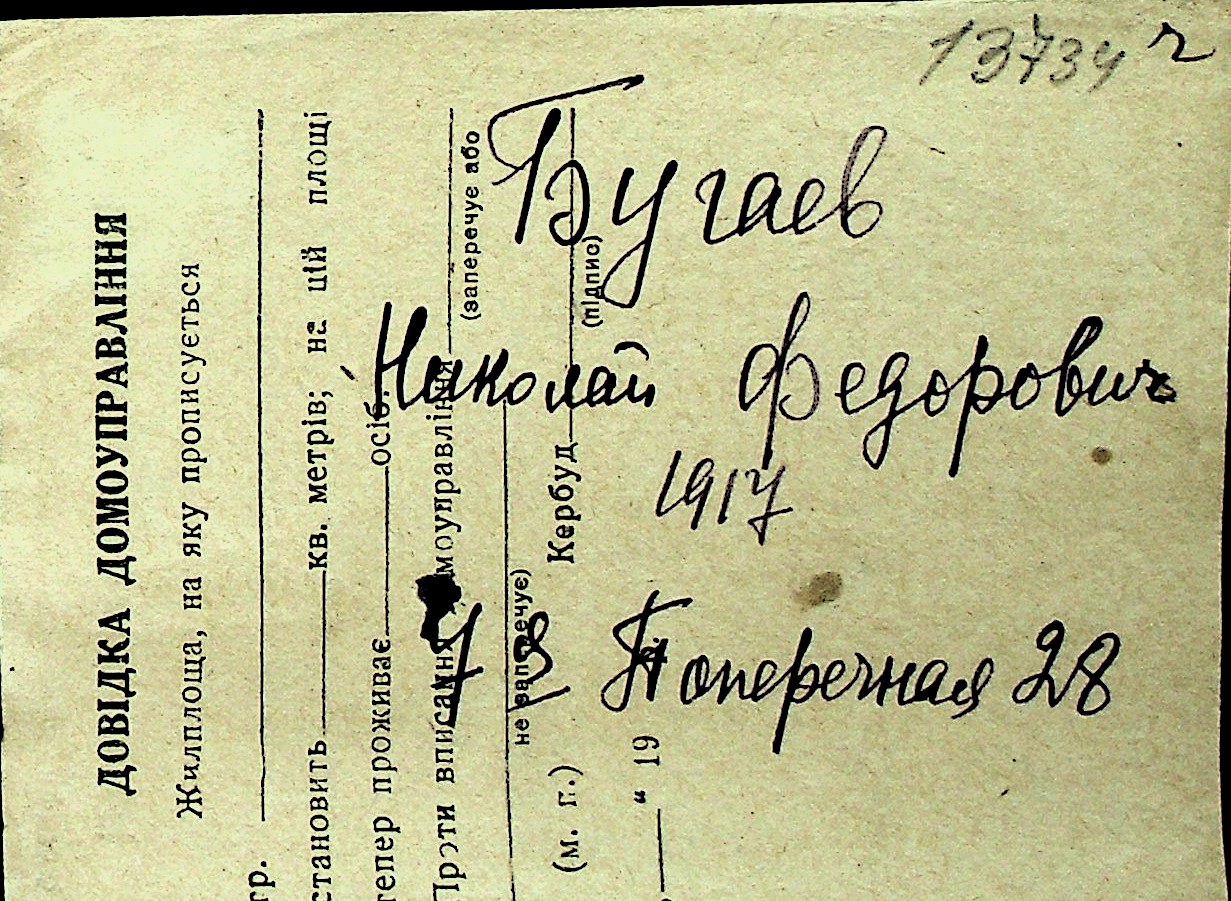 13734 г
Бугаев
Николай Федорович
1917
7 я Поперечная 28
ДОВІДКА ДОМОУПРАВЛІННЯ
Жилплоща, на яку прописується
гр.
становить кв. метрів; на цій площі
тепер проживає осіб.
Проти вписання моуправління
(заперечує або
не заперечує)
Кербуд
(підпис)
(м. п.)
“ 19